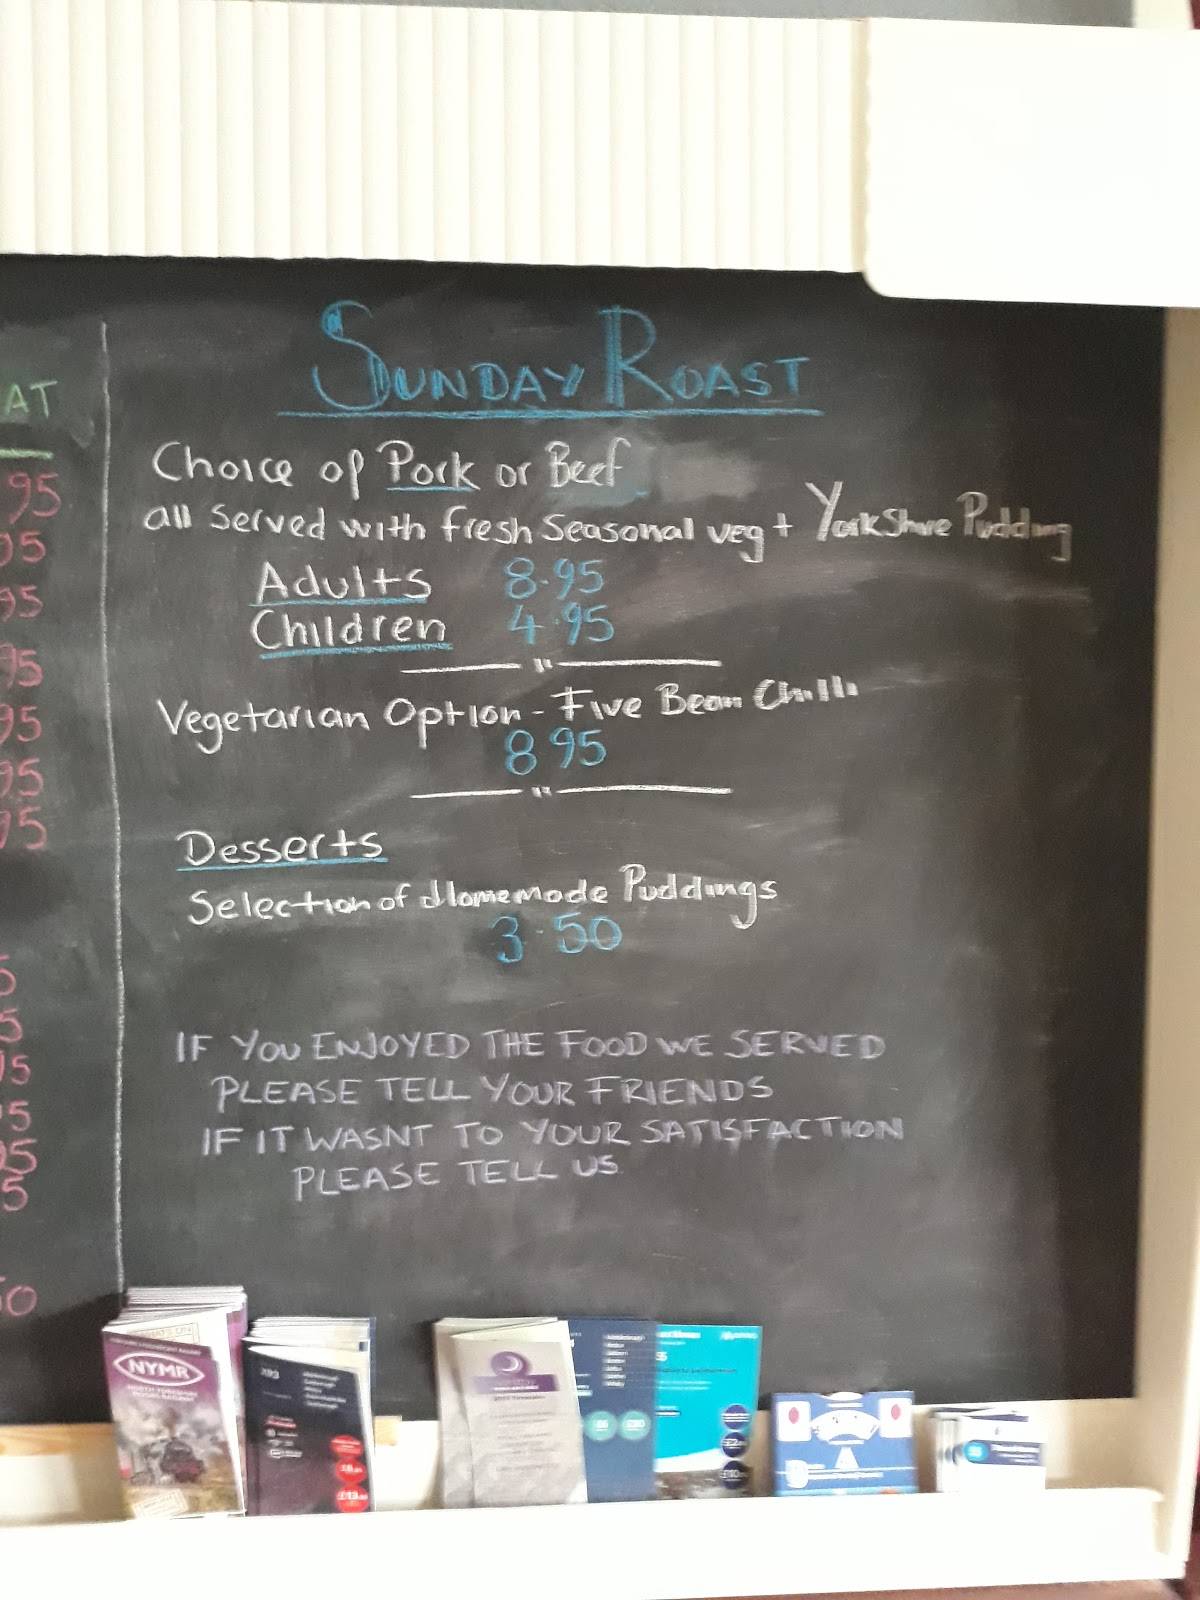 SUNDAY ROAST
Choice of Pork or Beef
all served with fresh seasonal veg + Yorkshire Pudding
Adults 8.95
Children 4.95
Vegetarian Option - Five Bean Chilli
8.95
Desserts
Selection of Homemade Puddings
3.50
IF YOU ENJOYED THE FOOD WE SERVED
PLEASE TELL YOUR FRIENDS
IF IT WASNT TO YOUR SATISFACTION
PLEASE TELL US
AT
95
95
95
95
95
95
95
5
5
95
95
95
5
50
NYMR